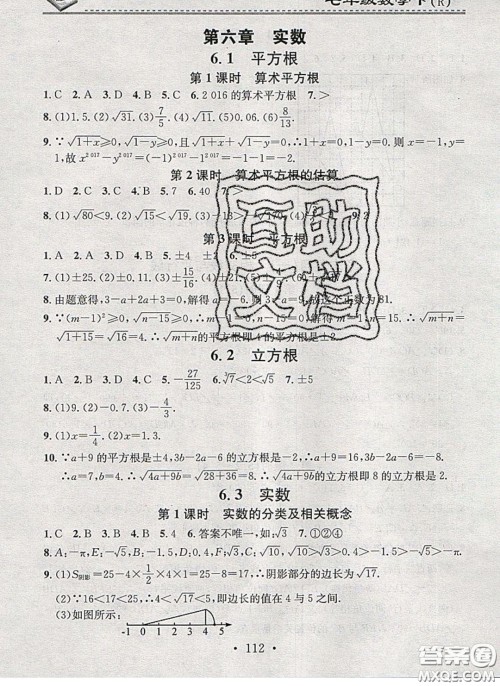 七年级数学下(R)
第六章 实数
6.1 平方根
第1课时 算术平方根
1. C 2. A 3. D 4. A 5. D 6. 2 016的算术平方根 7. >
8. (1)1.5. (2)√31. (3)7/5. (4)15. (5)0.06. (6)8/13.
9. ∵√(1+x)≥0, √(1-y)≥0, 且√(1+x)+√(1-y)=0, ∴1+x=0, 1-y=0, 则x=-1, y=
1, 故x²⁰¹⁷-y²⁰¹⁷=(-1)²⁰¹⁷-1²⁰¹⁷=-1-1=-2.
第2课时 算术平方根的估算
1. D 2. C 3. B 4. B 5. 7 6. 40 7. >
8. (1)√80<9. (2)√15<√19. (3)
第3课时 平方根
1. C 2. D 3. A 4. B 5. ±4
7. (1)±25. (2)±0.4. (3)±15/16. (4)
8. 由题意得, 3-a+2a+3=0, 解得a=-6. 则3-a= 故这个正数为81.
9. ∵(m-1)²≥0, √(n-15)≥0, ∴m-1=0, n-15=0, 解得m=1 ∴√(m+n)=
√(1+15)=√16=4. ∴√(m+n)的平方根即4的平方根是±2.
6.2 立方根
1. A 2. B 3. D 4. C 5. -27/125 6. ³√7<2<√5 7. ±5
8. (1)9. (2)-0.7. (3)-4/3.
9. (1)x=1/4. (2)x=1.3.
10. ∵a+9的平方根是±4, 3b-2a-6的立方根是-2. ∴a+9=16, 3b-2a-6=-8.
∴a=7, b=4. ∴√(4a+9b)=√(28+36)=8. ∴√(4a+9b)的立方根即8的立方根是2.
6.3 实数
第1课时 实数的分类及相关概念
1. C 2. B 3. D 4. B 5. A 6. 答案不唯一, 如:√3 7. ①②④
8. A:-π, E:-√5, B:-1.5, D:√2, C:√5. ∴√5>√2>-1.5>-√5>-π.
9. (1)S阴影=25-4×1/2×4×1=25-8=17, ∴阴影部分的边长为√17.
(2)∵16<17<25, ∴4<√17<5, 即边长的值在4与5之间.
(3)如图所示:
-1 0 1 2 3 4 5
· 112 ·
互助
文档
答案圈